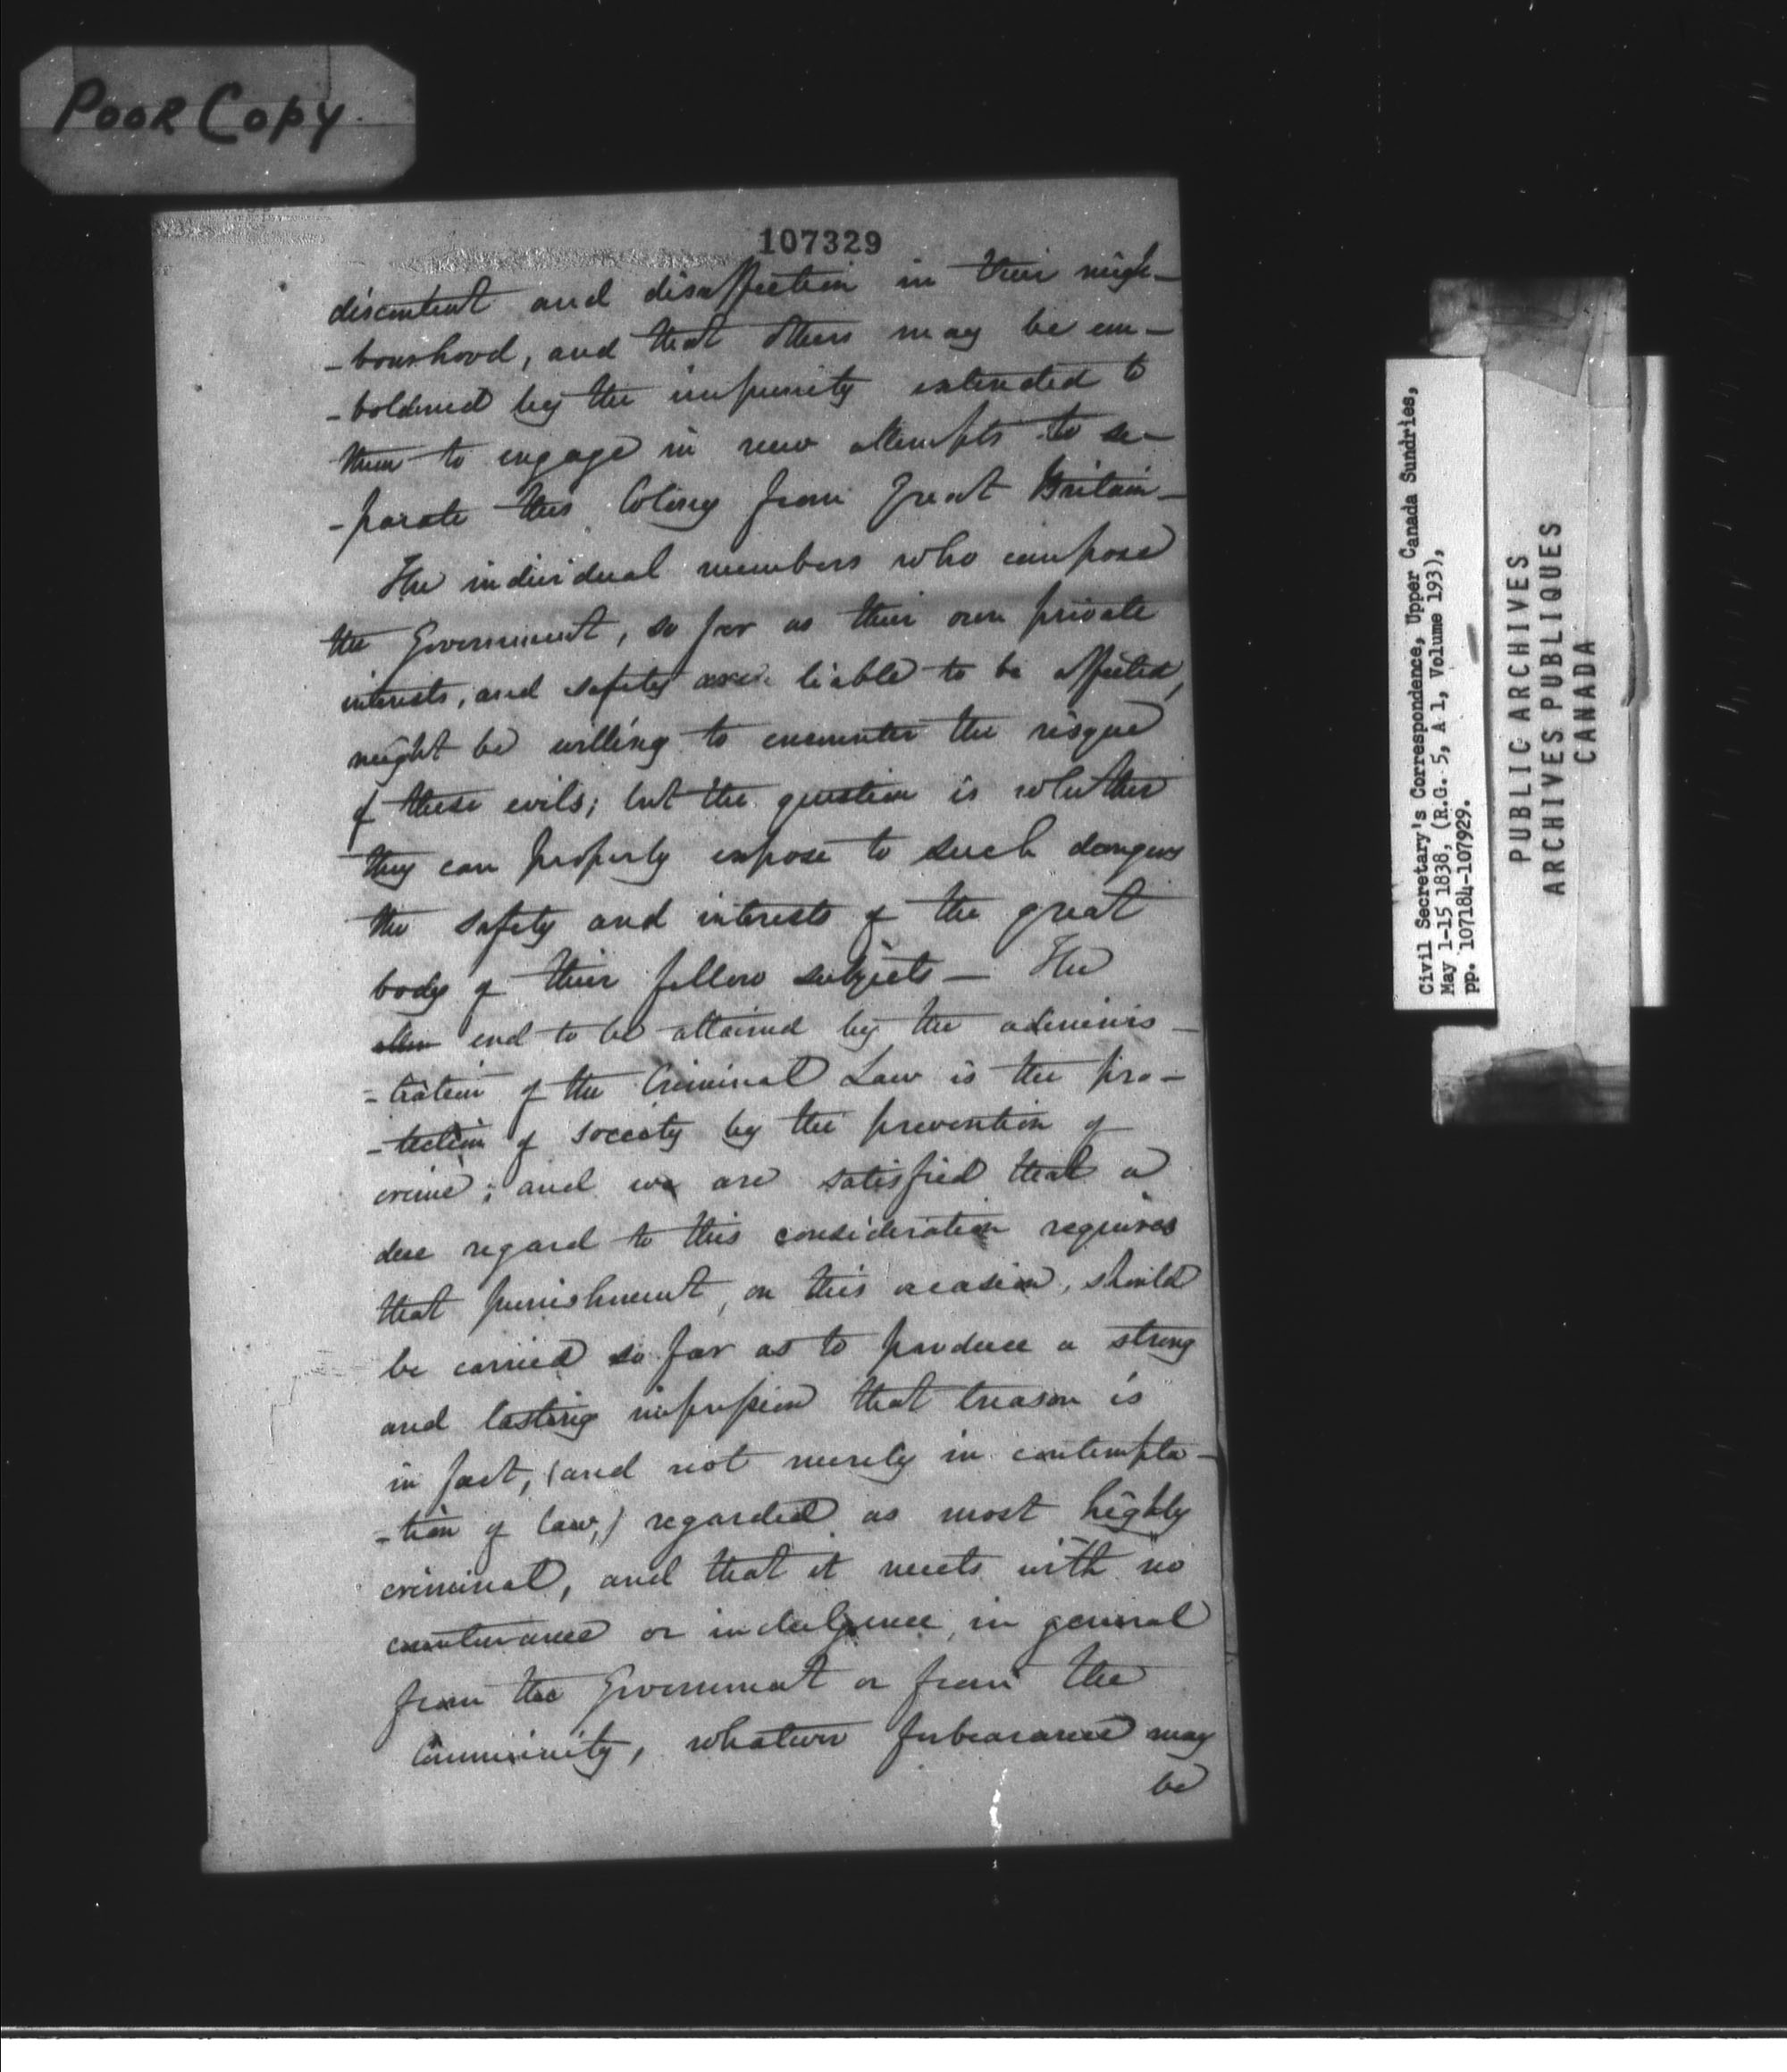 Poor Copy.
107329
discontent and disaffection in their neigh-
-bourhood, and that others may be em-
-boldened by the impunity extended to
them to engage in new attempts to se-
-parate this Colony from Great Britain-
The individual members who compose
the Government, so far as their own private
interests, and safety are liable to be affected,
might be willing to encounter the risque
of these evils; but the question is whether
they can properly expose to such dangers
the safety and interests of the great
body of their fellow subjects — The
end to be attained by the adminis-
-tration of the Criminal Law is the pro-
-tection of society by the prevention of
crime; and we are satisfied that a
due regard to this consideration requires
that punishment, on this occasion, should
be carried so far as to produce a strong
and lasting impression that treason is
in fact, (and not merely in contempla-
-tion of law,) regarded as most highly
criminal, and that it meets with no
countenance or indulgence, in general
from the Government or from the
Community, whatever forbearance may
be
Civil Secretary's Correspondence, Upper Canada Sundries,
May 1-15 1838, (R.G. 5, A 1, Volume 193),
pp. 107184-107929.
PUBLIC ARCHIVES
ARCHIVES PUBLIQUES
CANADA